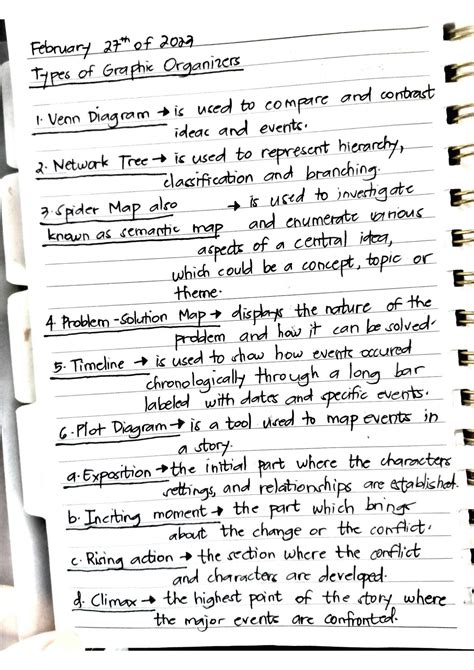 February 27th of 2023
Types of Graphic Organizers
1. Venn Diagram → is used to compare and contrast
ideas and events.
2. Network Tree → is used to represent hierarchy,
classification and branching.
3. Spider Map also → is used to investigate
known as semantic map and enumerate various
aspects of a central idea,
which could be a concept, topic or
theme.
4 Problem-Solution Map → displays the nature of the
problem and how it can be solved.
5. Timeline → is used to show how events occured
chronologically through a long bar
labeled with dates and specific events.
6. Plot Diagram → is a tool used to map events in
a story.
a. Exposition → the initial part where the characters
settings, and relationships are established.
b. Inciting moment → the part which brings
about the change or the conflict.
c. Rising action → the section where the conflict
and characters are developed.
d. Climax → the highest point of the story where
the major events are confronted.